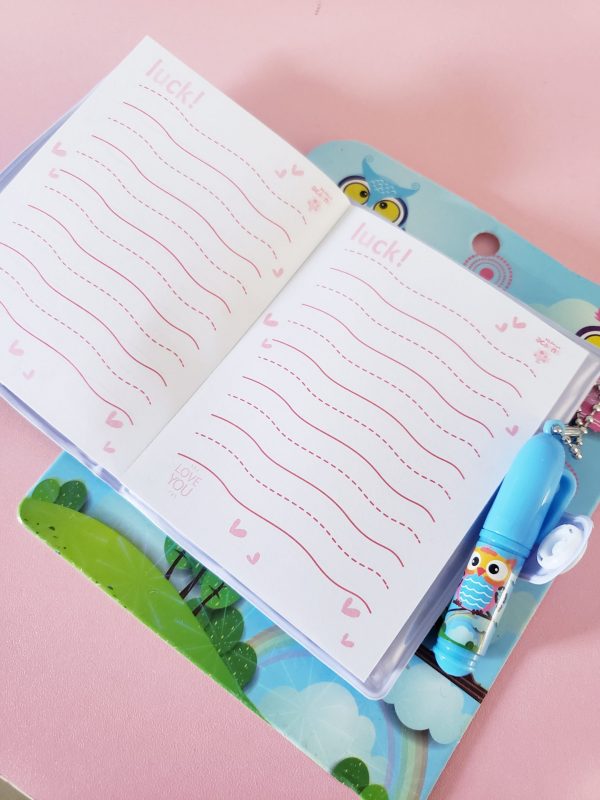 luck!
luck!
LOVE
YOU